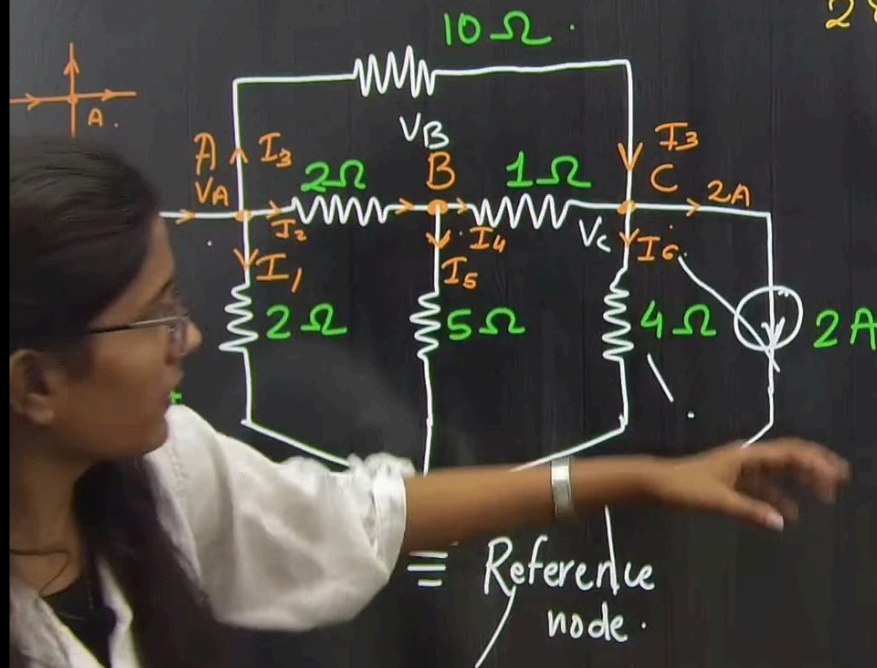 10Ω
2
A.
VB
A I3
I3
VA
2Ω
B
1Ω
C
2A
I2
I4
VC
I6
I1
I5
2Ω
5Ω
4Ω
2A
+
Reference
node.